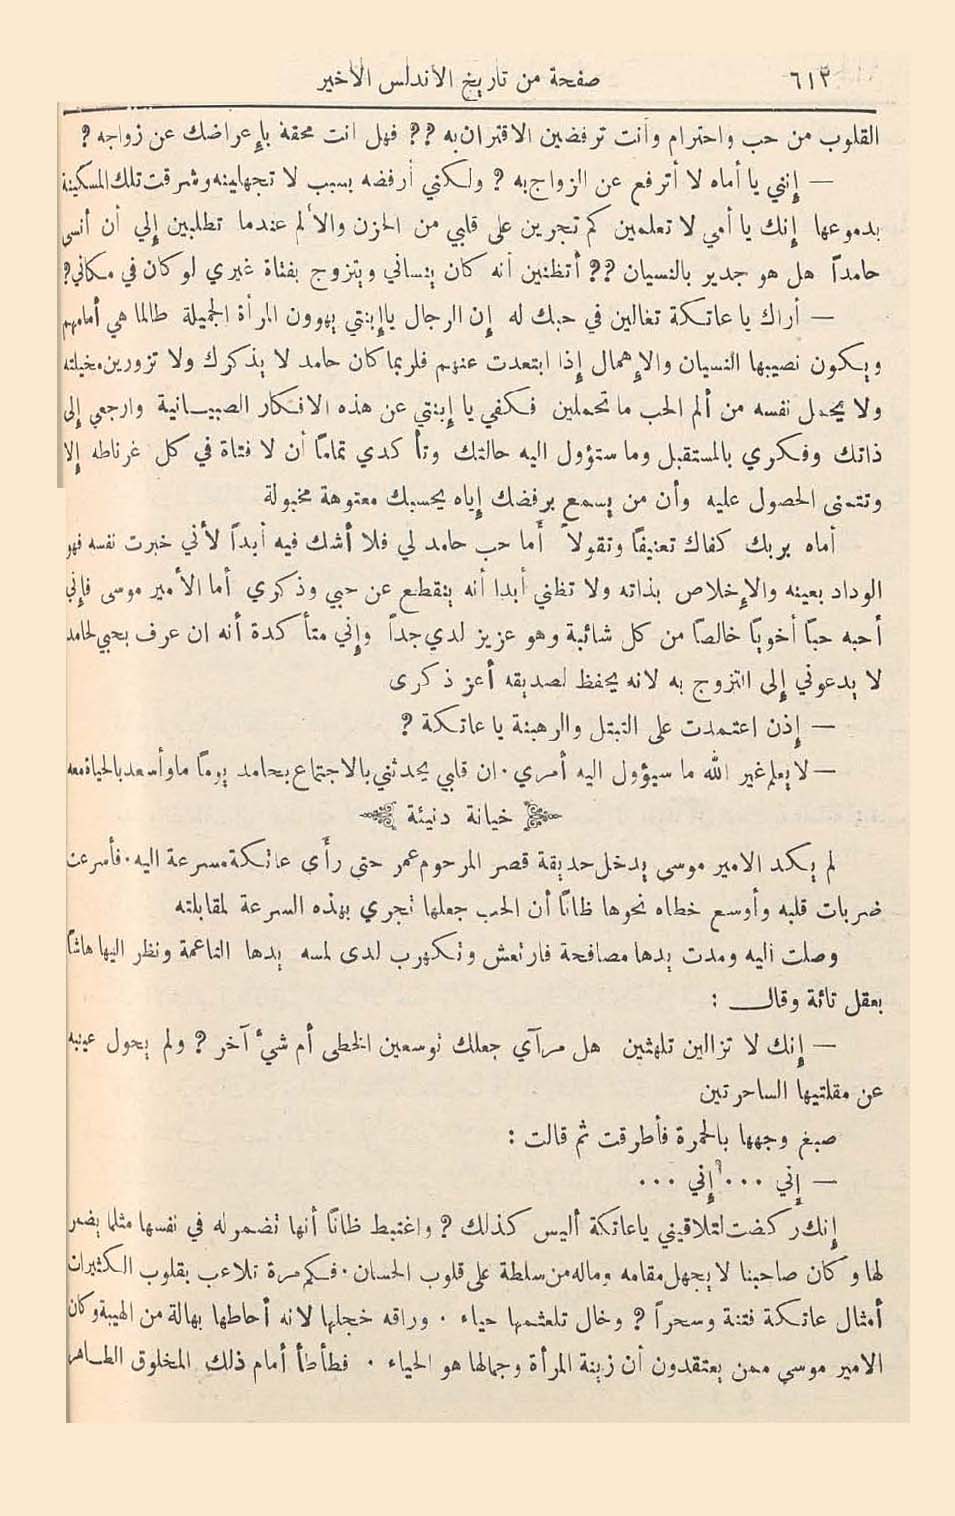 ٦١٣ صفحة من تاريخ الأندلس الأخير
القلوب من حب واحترام وأنت ترفضين الاقتران به ؟؟ فهل انت محقة بإعراضك عن زواجه ؟
— إنني يا أماه لا أترفع عن الزواج به ؟ ولكني أرفضه بسبب لا تجهلينه وشرقت تلك المسكينة
بدموعها إنك يا أمي لا تعلمين كم تجرين على قلبي من الحزن والألم عندما تطلبين إلي أن أنسى
حامداً هل هو جدير بالنسيان ؟؟ أتظنين أنه كان ينساني ويتزوج بفتاة غيري لو كان في مكاني ؟
— أراك يا عاتكة تغالين في حبك له إن الرجال يا إبنتي يهوون المرأة الجميلة طالما هي أمامهم
ويكون نصيبها النسيان والإهمال إذا ابتعدت عنهم فلربما كان حامد لا يذكرك ولا تزورين مخيلته
ولا يحمل نفسه من ألم الحب ما تحملين فكفي يا إبنتي عن هذه الافكار الصبيانية وارجعي إلى
ذاتك وفكري بالمستقبل وما ستؤول اليه حالتك وتأكدي تماماً أن لا فتاة في كل غرناطه إلا
وتتمنى الحصول عليه وأن من يسمع برفضك إياه يحسبك معتوهة مخبولة
أماه بربك كفاك تعنيفاً وتقولاً أما حب حامد لي فلا أشك فيه أبداً لأني خبرت نفسه فهو
الوداد بعينه والإخلاص بذاته ولا تظني أبدا أنه ينقطع عن حبي وذكري أما الأمير موسى فإني
أحبه حباً أخوياً خالصاً من كل شائبة وهو عزيز لدي جداً وإني متأكدة أنه ان عرف بحبي لحامد
لا يدعوني إلى التزوج به لانه يحفظ لصديقه أعز ذكرى
— إذن اعتمدت على التبتل والرهبنة يا عاتكة ؟
— لا يعلم غير الله ما سيؤول اليه أمري . ان قلبي يحدثني بالاجتماع بحامد يوماً ما وأسعد بالحياة معه
خيانة دنيئة
لم يكد الامير موسى يدخل حديقة قصر المرحوم عمر حتى رأى عاتكة مسرعة اليه . فأسرعت
ضربات قلبه وأوسع خطاه نحوها ظاناً أن الحب جعلها تجري بهذه السرعة لمقابلته
وصلت اليه ومدت يدها مصافحة فارتعش وتكهرب لدى لمسه يدها الناعمة ونظر اليها هاشاً
بعقل تائة وقال :
— إنك لا تزالين تلهثين هل مرآي جعلك توسعين الخطى أم شيء آخر ؟ ولم يحول عينيه
عن مقلتيها الساحرتين
صبغ وجهها بالحمرة فأطرقت ثم قالت :
— إني ... إني ...
إنك ركضت لتلاقيني يا عاتكة أليس كذلك ؟ واغتبط ظاناً أنها تضمر له في نفسها مثلما يضمر
لها وكان صاحبنا لا يجهل مقامه وماله من سلطة على قلوب الحسان . فكم مرة تلاعب بقلوب الكثيرات
أمثال عاتكة فتنة وسحراً ؟ وخال تلعثمها حياء . وراقه خجلها لانه أحاطها بهالة من الهيبة وكان
الامير موسى ممن يعتقدون أن زينة المرأة وجمالها هو الحياء . فطأطأ أمام ذلك المخلوق الطاهر